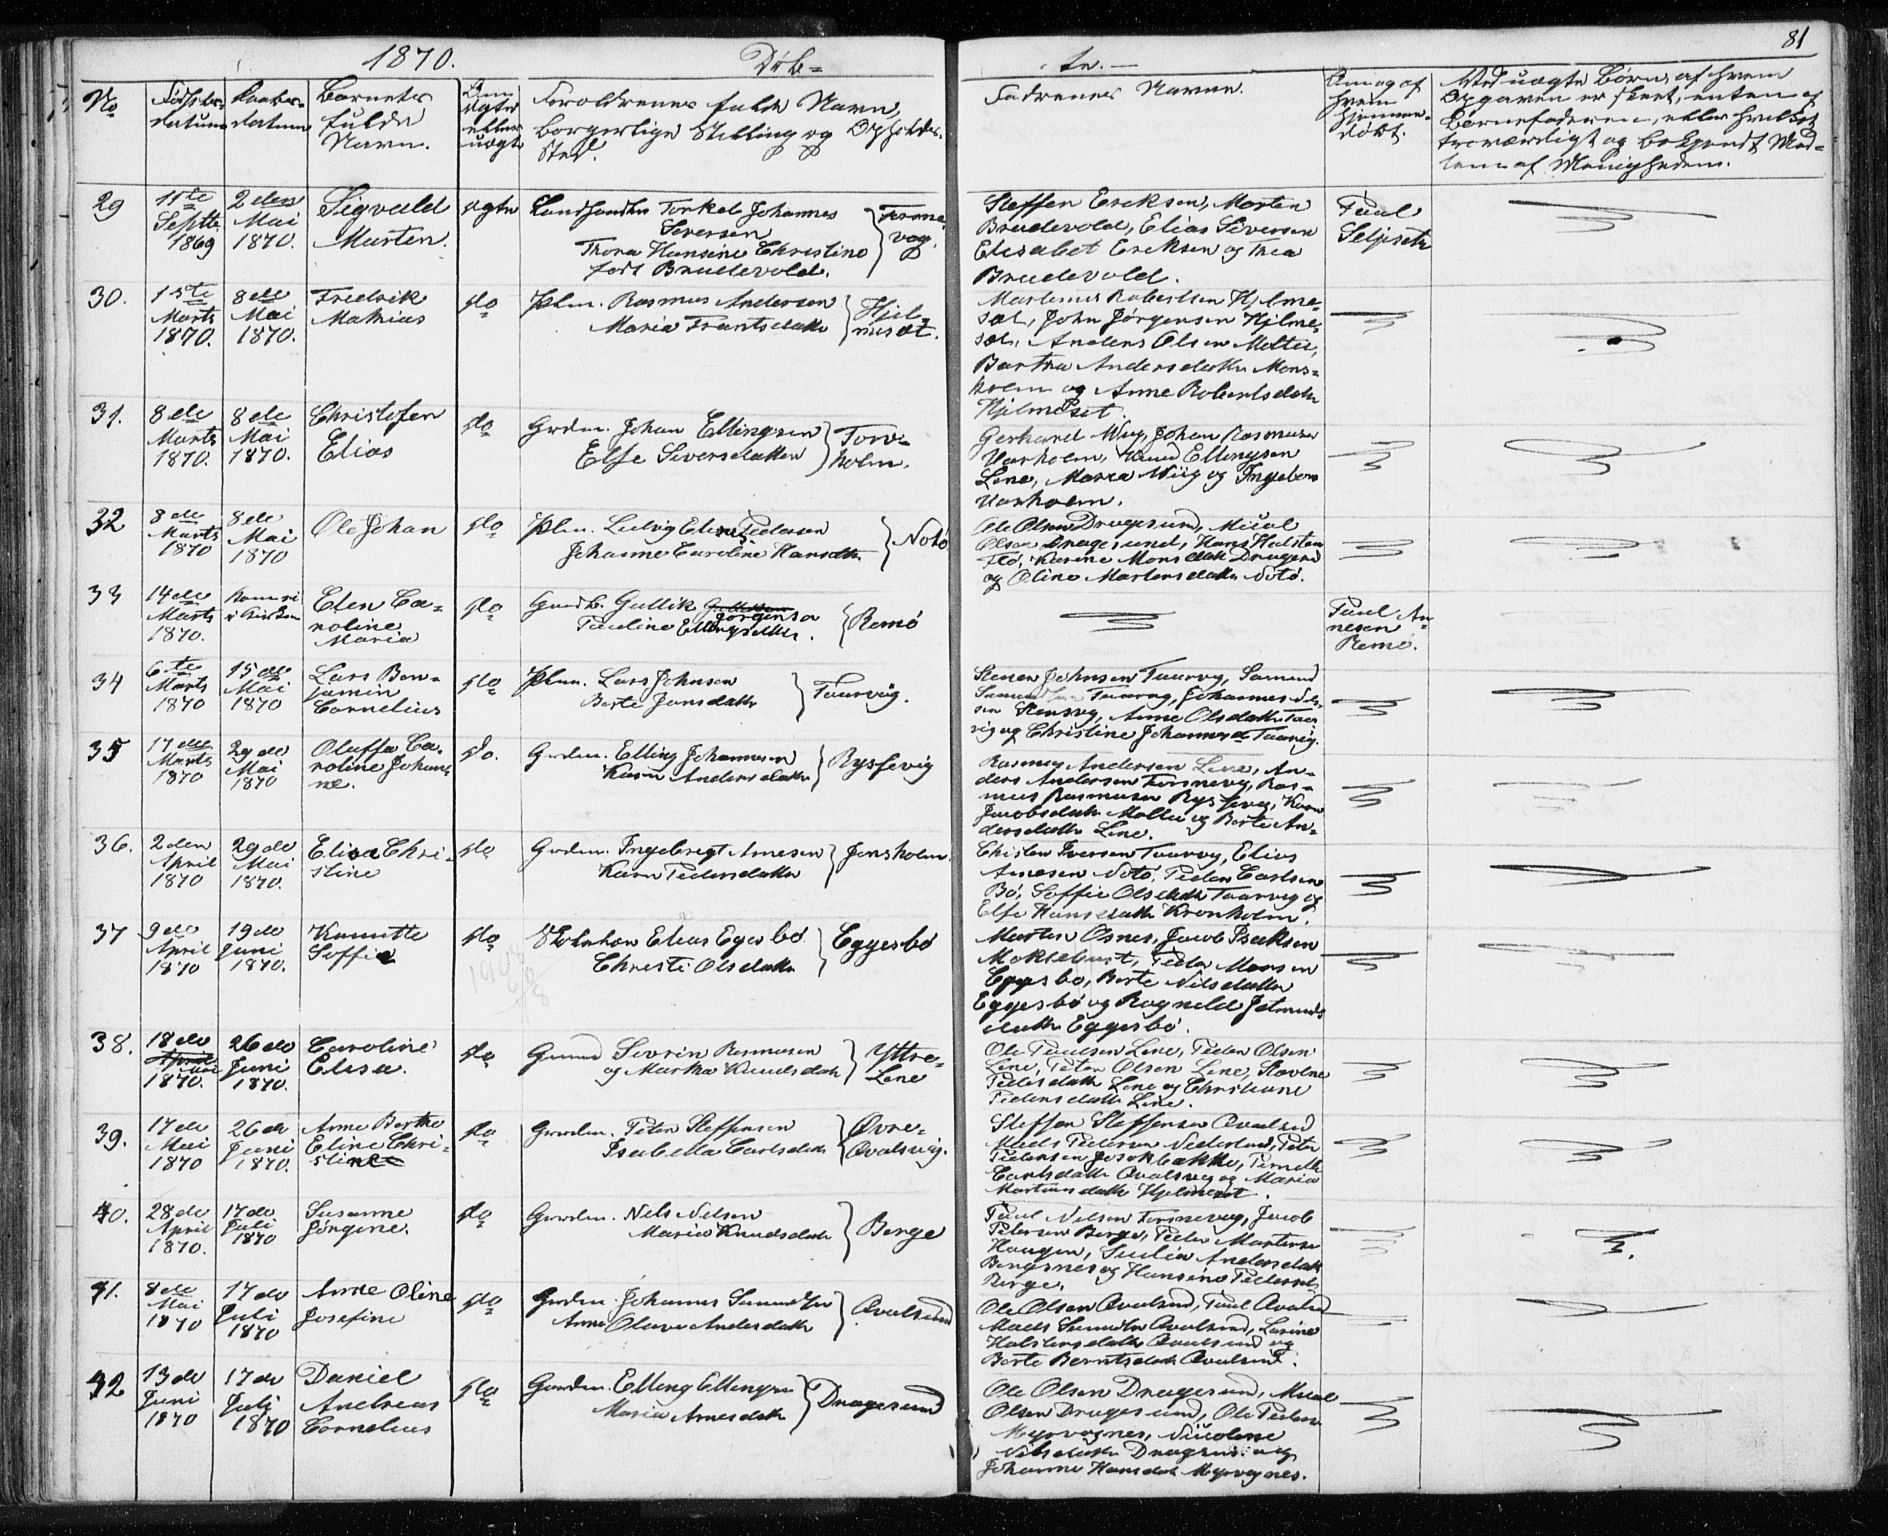 1870.
Døb-
te.
81
No
Fødsels-
datum
Daabs-
datum
Barnets
fulde
Navn.
Om
ægte
eller
uægte
Forældrenes fulde Navn,
borgerlige Stilling og Opholds-
Sted.
Faddrenes Navne.
Om og af
hvem
hjemme-
døbt.
Ved uægte Børn, af hvem
Opgaven er skeet, enten af
Barnefaderen, eller hvilket
troværdigt og bekjendt Med-
lem af Menigheden.
29
11te
Septbr
1869
2den
Mai
1870.
Sigvald
Marten.
ægte
Landhandler Torkel Johannes
Seversen
Thora Hansine Christine
født Brudevold.
Fosne-
vog.
Steffen Eriksen, Morten
Brudevold, Elias Seversen
Elisabet Eriksen og Thea
Brudevold.
Paul
Seljeset
30.
15te
Marts
1870.
8de
Mai
1870.
Fredrik
Mathias
do
Plm. Rasmus Andersen
Maria Frantsdatter
Hjel-
meset.
Martinus Robertsen Hjelme-
set, John Jørgensen Hjelme-
set, Anders Olsen Moltu,
Bertha Andersdatter Mons-
holm og Anne Robertsdatter
Hjelmeset.
31.
8de
Marts
1870.
8de
Mai
1870.
Christofer
Elias
do
Grdm. Johan Ellingsen
Else Seversdatter
Torv-
holm.
Gerhard Wiig, Johan Rasmusen
Varholm, Knud Ellingsen
Lene, Maria Wiig og Ingeborg
Varholm.
32
8de
Marts
1870
8de
Mai
1870
Ole Johan
do
Plm. Ludvig Elias Pedersen
Johanne Caroline Hansdtr.
Notø
Ole Olsen Dragesund, Mical
Olsen Dragesund, Hans Halsten
Flø, Karine Monsdatr Dragesund
og Oline Martensdatter Notø.
33
14de
Marts
1870.
Kom ei
i Kirken
Elen Ca-
roline
Maria
do
Gaardb. Gullik
Jørgensen
Pauline Ellingsdatter.
Remø
Paul An-
nesen
Remø.
34
6te
Marts
1870
15de
Mai
1870
Lars Ben-
jamin
Cornelius
do
Plm. Lars Johnsen
Berte Jonsdatter
Taarvig.
Stener Johnsen Taarvig, Samund
Samundsen Taarvig, Johannes Nil-
sen, Anne Olsdatter Taar-
vig og Christine Johannesd. Taarvig.
35
17de
Marts
1870
29de
Mai
1870
Oluffa Ca-
roline Johan-
ne.
do.
Grdm. Elling Johannesen
Karen Andersdatter
Røsevig
Rasmus Andersen Lene, An-
ders Andersen Fosnevog, Ras-
mus Rasmusen Røsevig, Karen
Jacobsdatter Moltu og Berte An-
dersdatter Lene.
36.
2den
April
1870
29de
Mai
1870.
Elisa Chri-
stine
do
Grdm. Ingebrigt Arnesen
Karen Pedersdatter
Jensholm.
Chisten Iversen Taarvig, Elias
Arnesen Notø, Peder Carlsen
Bø, Soffie Olsdatter Taarvig og
Else Hansdatter Kronholm.
37
9de
April
1870
19de
Juni
1870.
Kanutte
Soffie
do
Elias Egesbø
Christi Olsdatter
Eggesbø
Marten Osnes, Jacob Isaksen
Moksebust, Peder Monsen
Eggesbø, Berte Nilsdatter
Eggesbø og Ragnild Jetmunds
datter Eggesbø.
38.
18de
1870.
26de
Juni
1870.
Caroline
Elisa.
do
Grdmd Sevrin Rasmusen
og Martha Knudsdatr
Yttre-
Lene
Ole Paulsen Lene, Peder Olsen
Lene, Peter Olsen Lene,
Pedersdatter Lene og Christiane
Pedersdatter Lene.
39.
17de
Mai
1870
26de
Juni
1870.
Anne Berthe
Eline Chri-
stine
do
Gaardm. Peter Steffensen
Isabella Carlsdatr
Øvre-
Qvalsvig.
Steffen Steffensen Qvalsund
Mads Pedersen Nederlund, Peter
Pedersen Josokbakke, Pernille
Carlsdatter Qvalsvig og Maria
Martinusdatter Hjelmeset.
40.
28de
April
1870.
17de
Juli
1870
Susanne
Jørgine.
do
Gaardm. Nils Nilsen
Maria Knudsdatr
Berge
Paul Nilsen Fosnevog, Jacob
Petersen Berge, Peder Martense
Haugen, Andersdatr
Bergsnes og Hansine Pedersdtr
Berge.
41.
8de
Mai
1870
17de
Juli
1870
Anne Oline
Josefine
do
Grdm. Johannes
Anne Olave Andersdatr
Qvalsund
Ole Olsen Qvalsund, Paul Qvalsund
Mads Qvalsund, Larine
Halstensdatter Qvalsund og
Berte Berntsdatr Qvalsund.
42
13de
Juni
1870
17de
Juli
1870
Daniel
Andreas
Cornelius
do
Gaardm. Elling Ellingsen
Maria Arnesdatr
Dragesund
Ole Olsen Dragesund, Mical
Olsen Dragesund, Ole Pedersen
Myrvognes, Nicoline
Nilsdatter Dragesund og
Johanne Hansdatr Myrvognes.